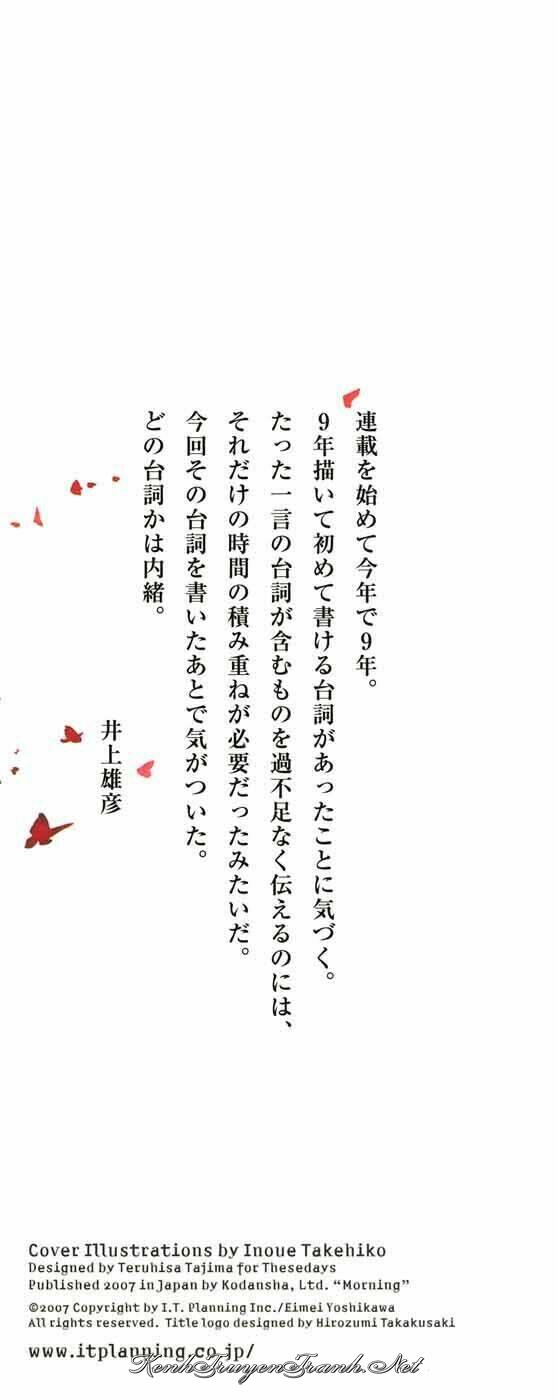 連載を始めて今年で9年。
9年描いて初めて書ける台詞があったことに気づく。
たった一言の台詞が含むものを過不足なく伝えるのには、
それだけの時間の積み重ねが必要だったみたいだ。
今回その台詞を書いたあとで気がついた。
どの台詞かは内緒。
井上雄彦
Cover Illustrations by Inoue Takehiko
Designed by Teruhisa Tajima for Thesedays
Published 2007 in Japan by Kodansha, Ltd. “Morning”
©2007 Copyright by I.T. Planning Inc./Eimei Yoshikawa
All rights reserved. Title logo designed by Hirozumi Takakusaki
www.itplanning.co.jp/
KenhTruyenTranh.Net